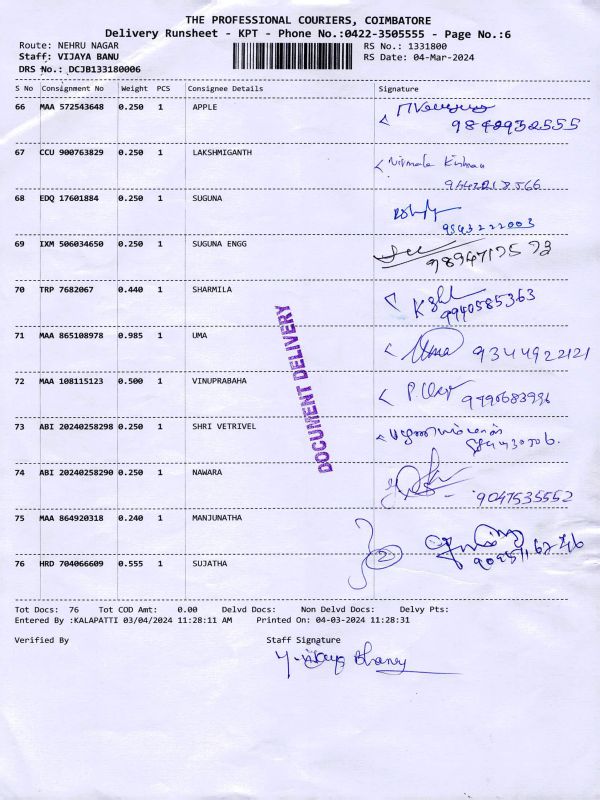 THE PROFESSIONAL COURIERS, COIMBATORE
Delivery Runsheet - KPT - Phone No.:0422-3505555 - Page No.:6
Route: NEHRU NAGAR RS No.: 1331800
Staff: VIJAYA BANU RS Date: 04-Mar-2024
DRS No.: DCJB133180006
S No Consignment No Weight PCS Consignee Details Signature
66 MAA 572543648 0.250 1 APPLE
9842932555
67 CCU 900763829 0.250 1 LAKSHMIGANTH Nirmala Krishnan
68 EDQ 17601884 0.250 1 SUGUNA
9543222003
69 IXM 506034650 0.250 1 SUGUNA ENGG
9894717573
70 TRP 7682067 0.440 1 SHARMILA
9940585363
71 MAA 865108978 0.985 1 UMA Uma 9344922121
72 MAA 108115123 0.500 1 VINUPRABAHA
73 ABI 20240258298 0.250 1 SHRI VETRIVEL
74 ABI 20240258290 0.250 1 NAWARA
9047535552
75 MAA 864920318 0.240 1 MANJUNATHA
76 HRD 704066609 0.555 1 SUJATHA 2
DOCUMENT DELIVERY
Tot Docs: 76 Tot COD Amt: 0.00 Delvd Docs: Non Delvd Docs: Delvy Pts:
Entered By :KALAPATTI 03/04/2024 11:28:11 AM Printed On: 04-03-2024 11:28:31
Verified By Staff Signature